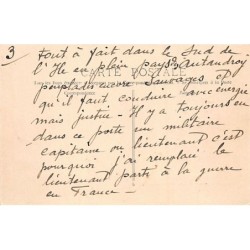 3 Tout à fait dans le Sud de
l'Ile en plein pays Antandroy
CARTE POSTALE
peuplades encore Sauvages et
qu'il faut conduire avec énergie
mais justice - Il y a toujours en
dans ce poste un militaire
capitaine ou lieutenant c'est
pourquoi j'ai remplacé le
lieutenant parti à la guerre
en France -